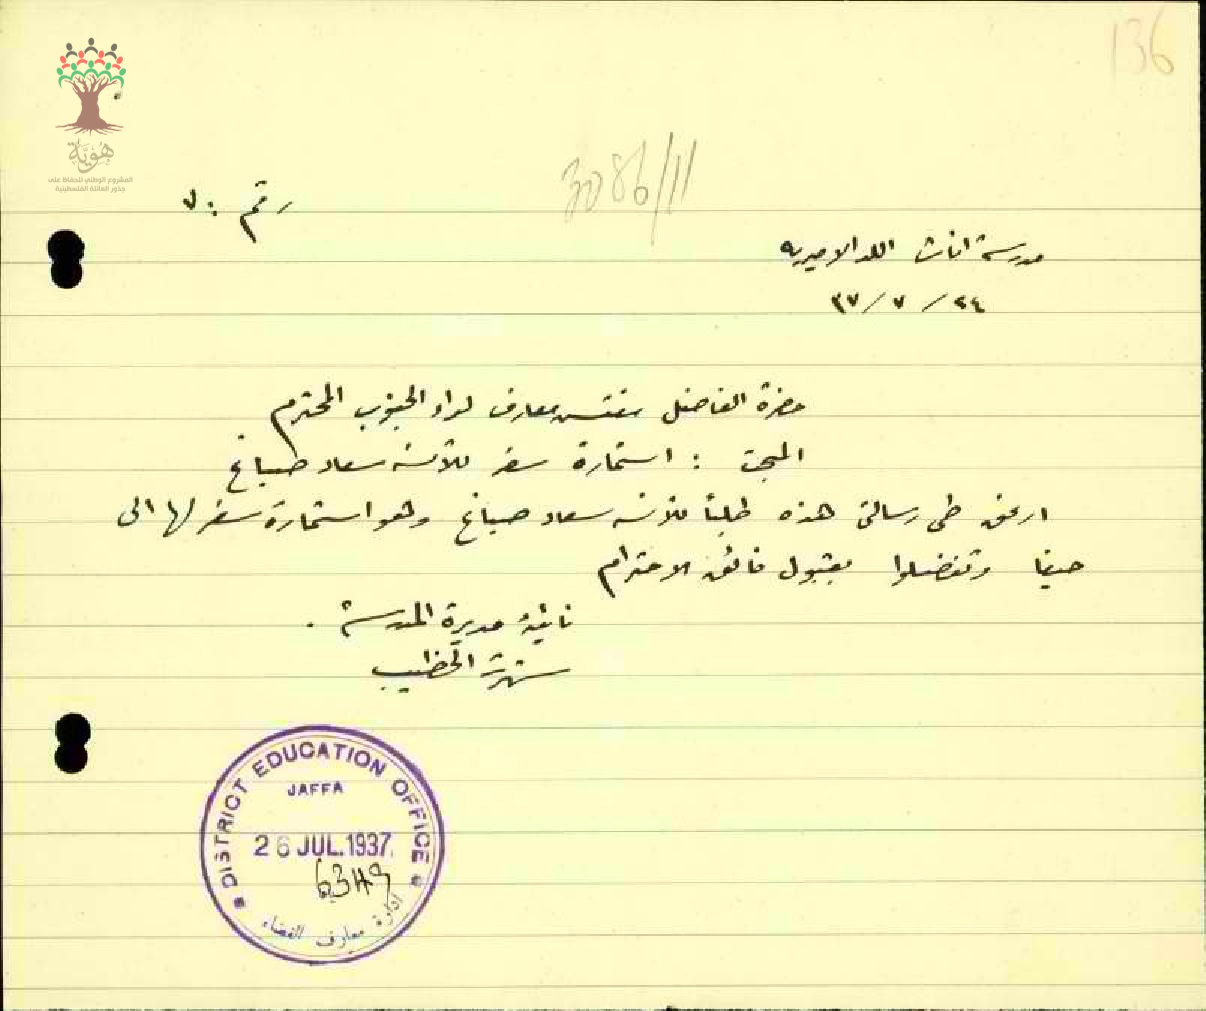 136
هُوِيَّة
المشروع الوطني للحفاظ على
جذور العائلة الفلسطينية
3086/11
رقم : ٧
مدرسة اناث اللد الاميريه
٢٤ / ٧ / ٣٧
حضرة الفاضل مفتش معارف لواء الجنوب المحترم
المبحث : استمارة سفر للآنسه سعاد صباغ
ارفق طي رسالتي هذه طلباً للآنسه سعاد صباغ وهو استمارة سفر لها الى
حيفا وتفضلوا بقبول فائق الاحترام
نائبة مديرة المدرسة .
الخطيب
DISTRICT EDUCATION OFFICE
JAFFA
26 JUL. 1937
ادارة معارف القضاء